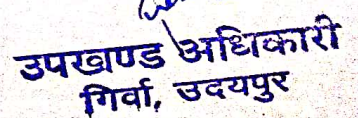 उपखण्ड अधिकारी
गिर्वा, उदयपुर